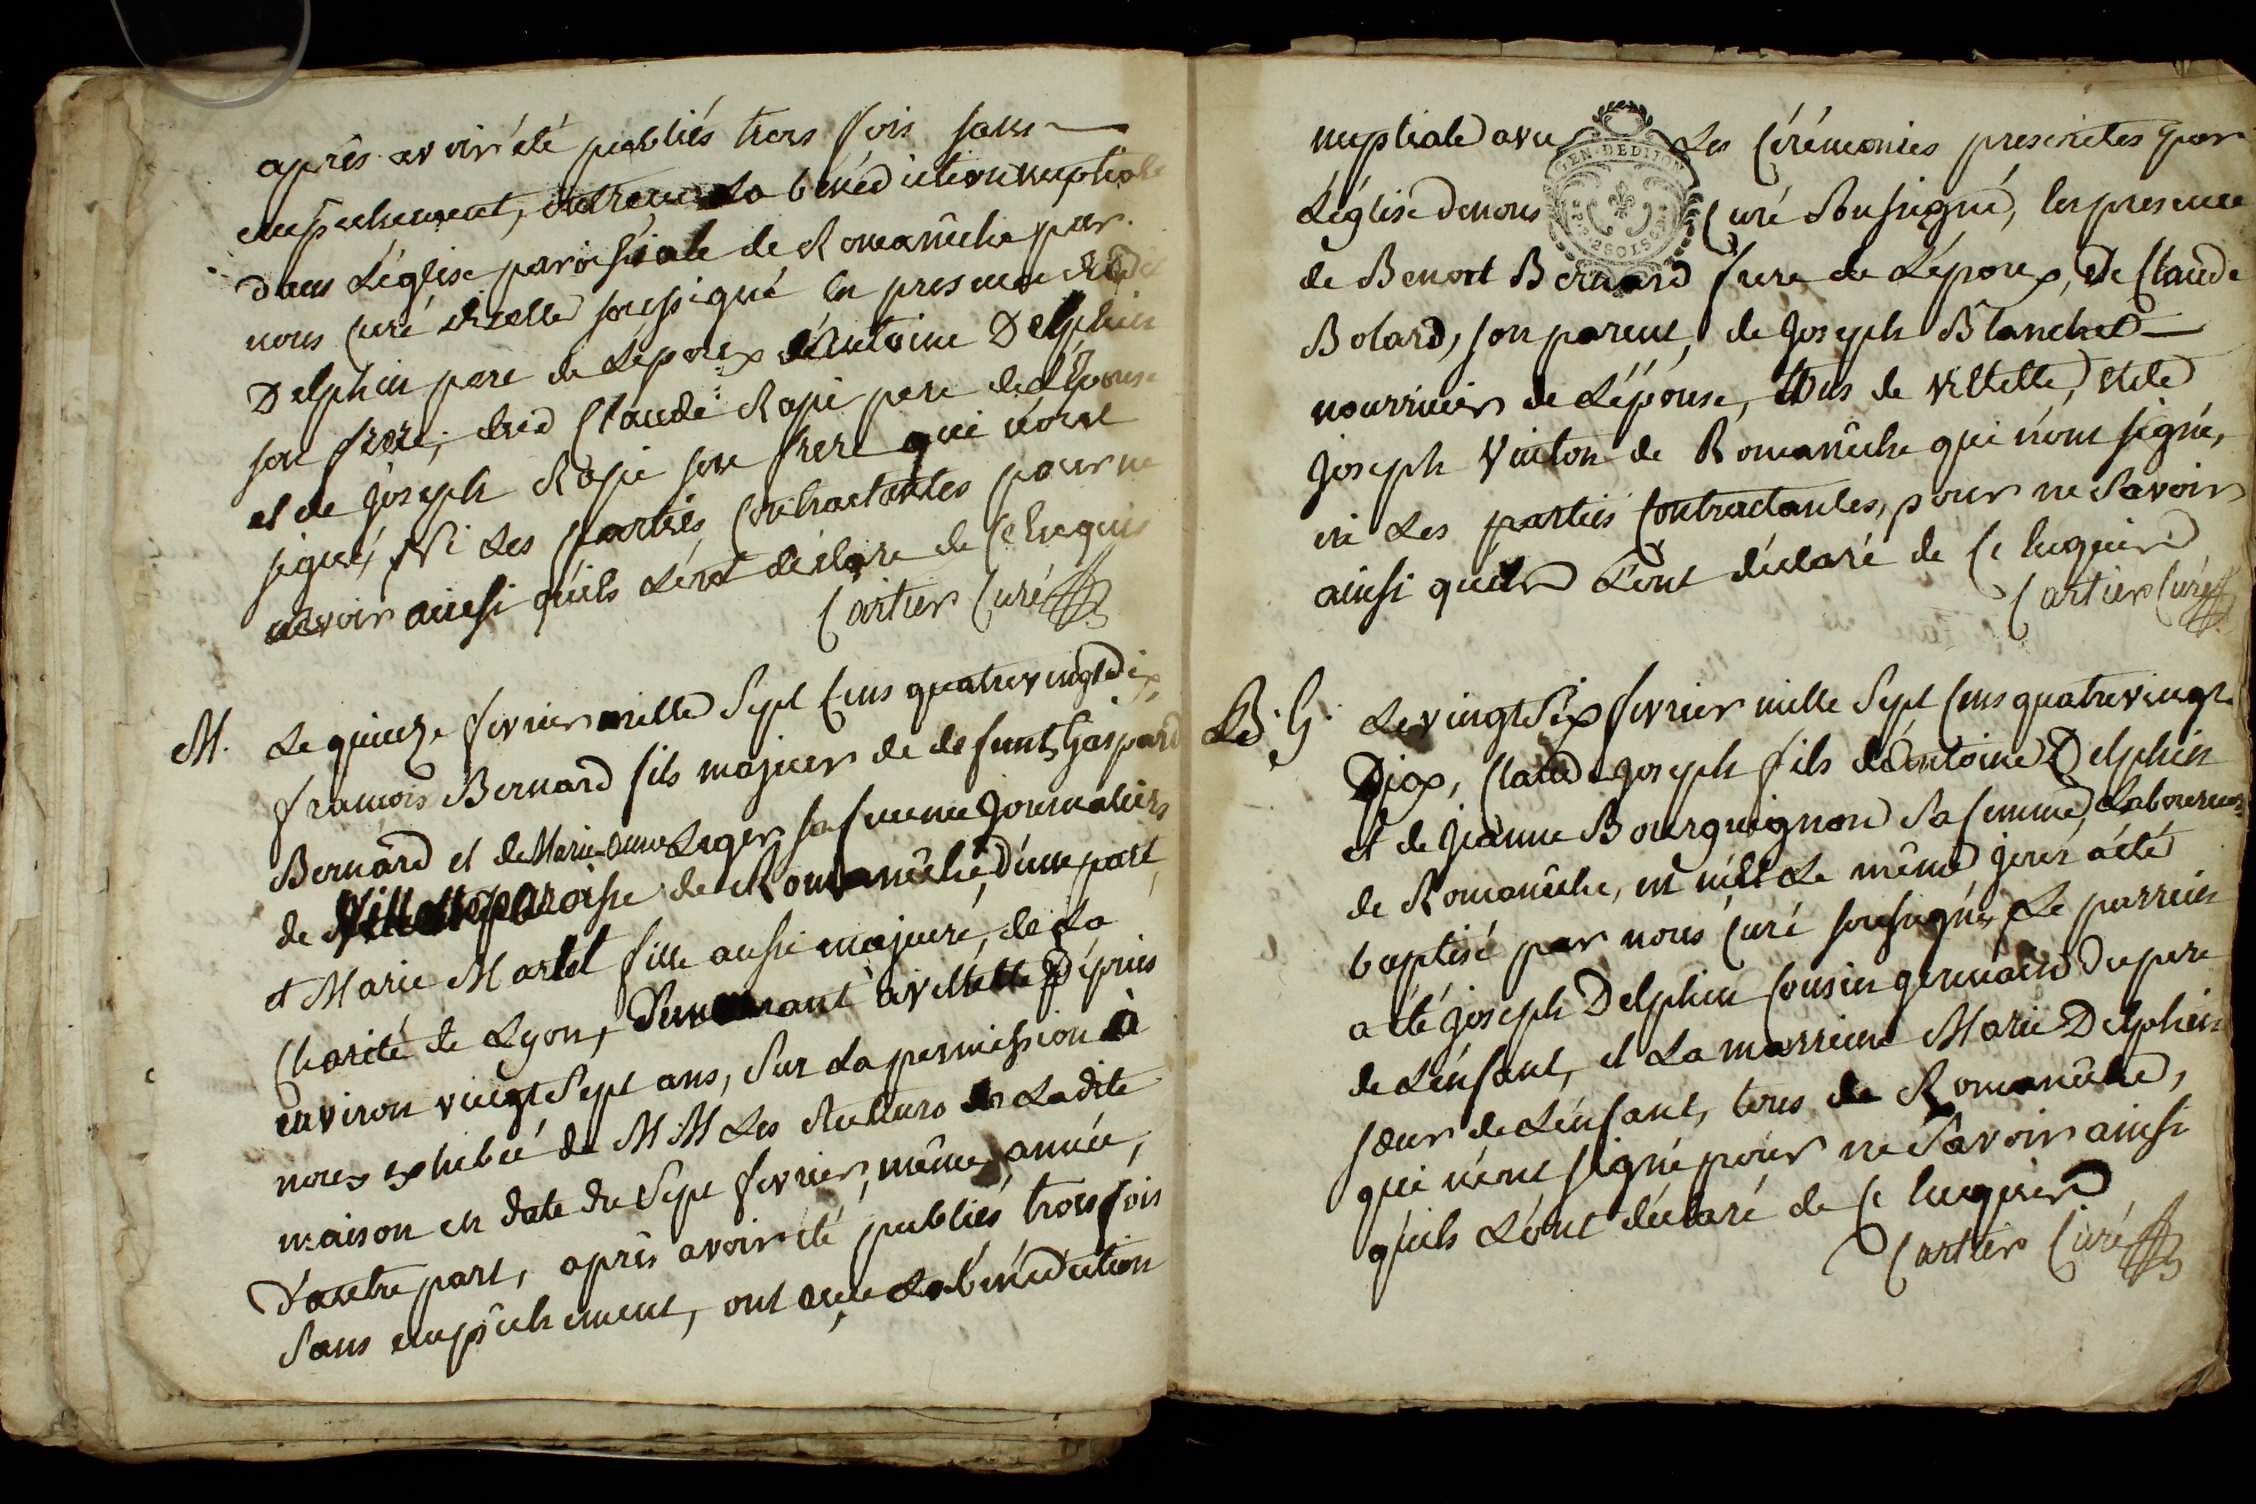 après avoir été publiés trois fois sans
empechement, ont recu La bénédiction nuptiale
dans L'église paroissiale de Romanêche par
nous Curé d'icelle soussigné en presence de
Delphin pere de L'epoux d'Antoine Delphin
son frere, de Claude Rapi pere de L'Epouse
et de Joseph Rapi son frere qui n'ont
signé, Ni Les parties Contractantes pour ne
savoir ainsi qu'ils L'ont déclaré de Ce Enquis
Cartier Curé
M. Le quinze fevrier mille Sept Cens quatre vingt dix
francois Bernard fils majeur de defunts Gaspard
Bernard et de Marie anne Leger sa femme Journaliers
de Villette paroisse de Romanêche, d'une part,
et Marie Martel fille aussi majeure, de La
Charité de Lyon, Demeurant à villette Depuis
environ vingt Sept ans, Sur La permission à
nous exhibée de MM Les Recteurs de Ladite
maison en date du Sept fevrier, même année,
D'autre part, après avoir été publiés trois fois
Sans empêchement, ont recu La bénédiction
nuptiale avec Les Cérémonies prescrites par
GEN. DE DIJON
L'église de nous Curé Soussigné, En presence
2 SOLS
de Benoit Bernard frere de L'époux, De Claude
Bolard, son parent, de Joseph Blanchet
nourricier de L'épouse, tous de villette, et de
Joseph Vuiton de Romanêche qui n'ont signé,
ni Les parties Contractantes, pour ne Savoir
ainsi qu'ils L'ont déclaré de Ce Enquis
Cartier Curé
B. G. Le vingt Six fevrier mille Sept Cens quatre vingt
Dix, Claude Joseph fils d'Antoine Delphin
et de Jeanne Bourguignon Sa femme, Laboureur
de Romanêche, est né et Le même jour a été
baptisé par nous Curé soussigné, Le parrein
a été Joseph Delphin Cousin germain du pere
de L'enfant, et La marreine Marie Delphin
sœur de L'enfant, tous de Romanêche,
qui n'ont signé pour ne Savoir ainsi
qu'ils L'ont déclaré de Ce Enquis
Cartier Curé